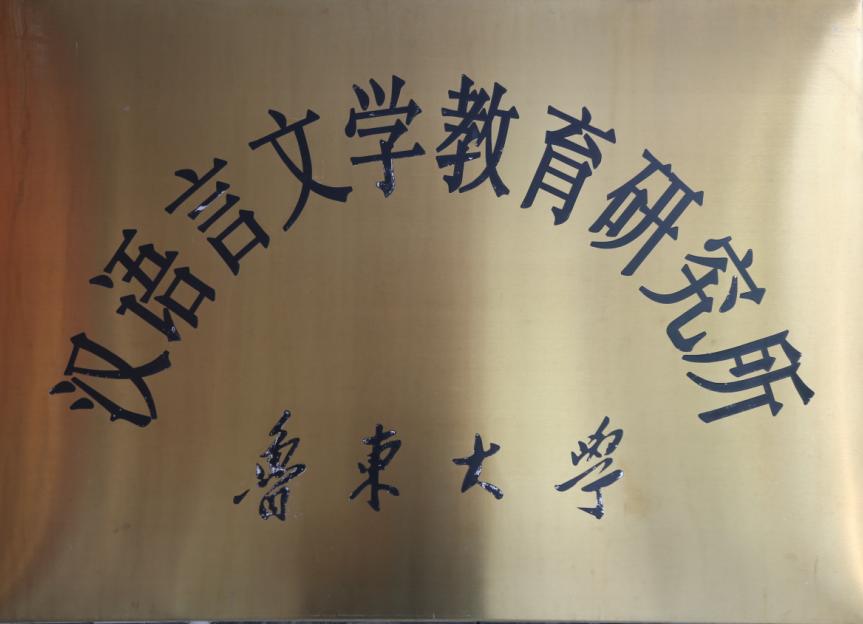 汉语言文学教育研究所
魯東大學